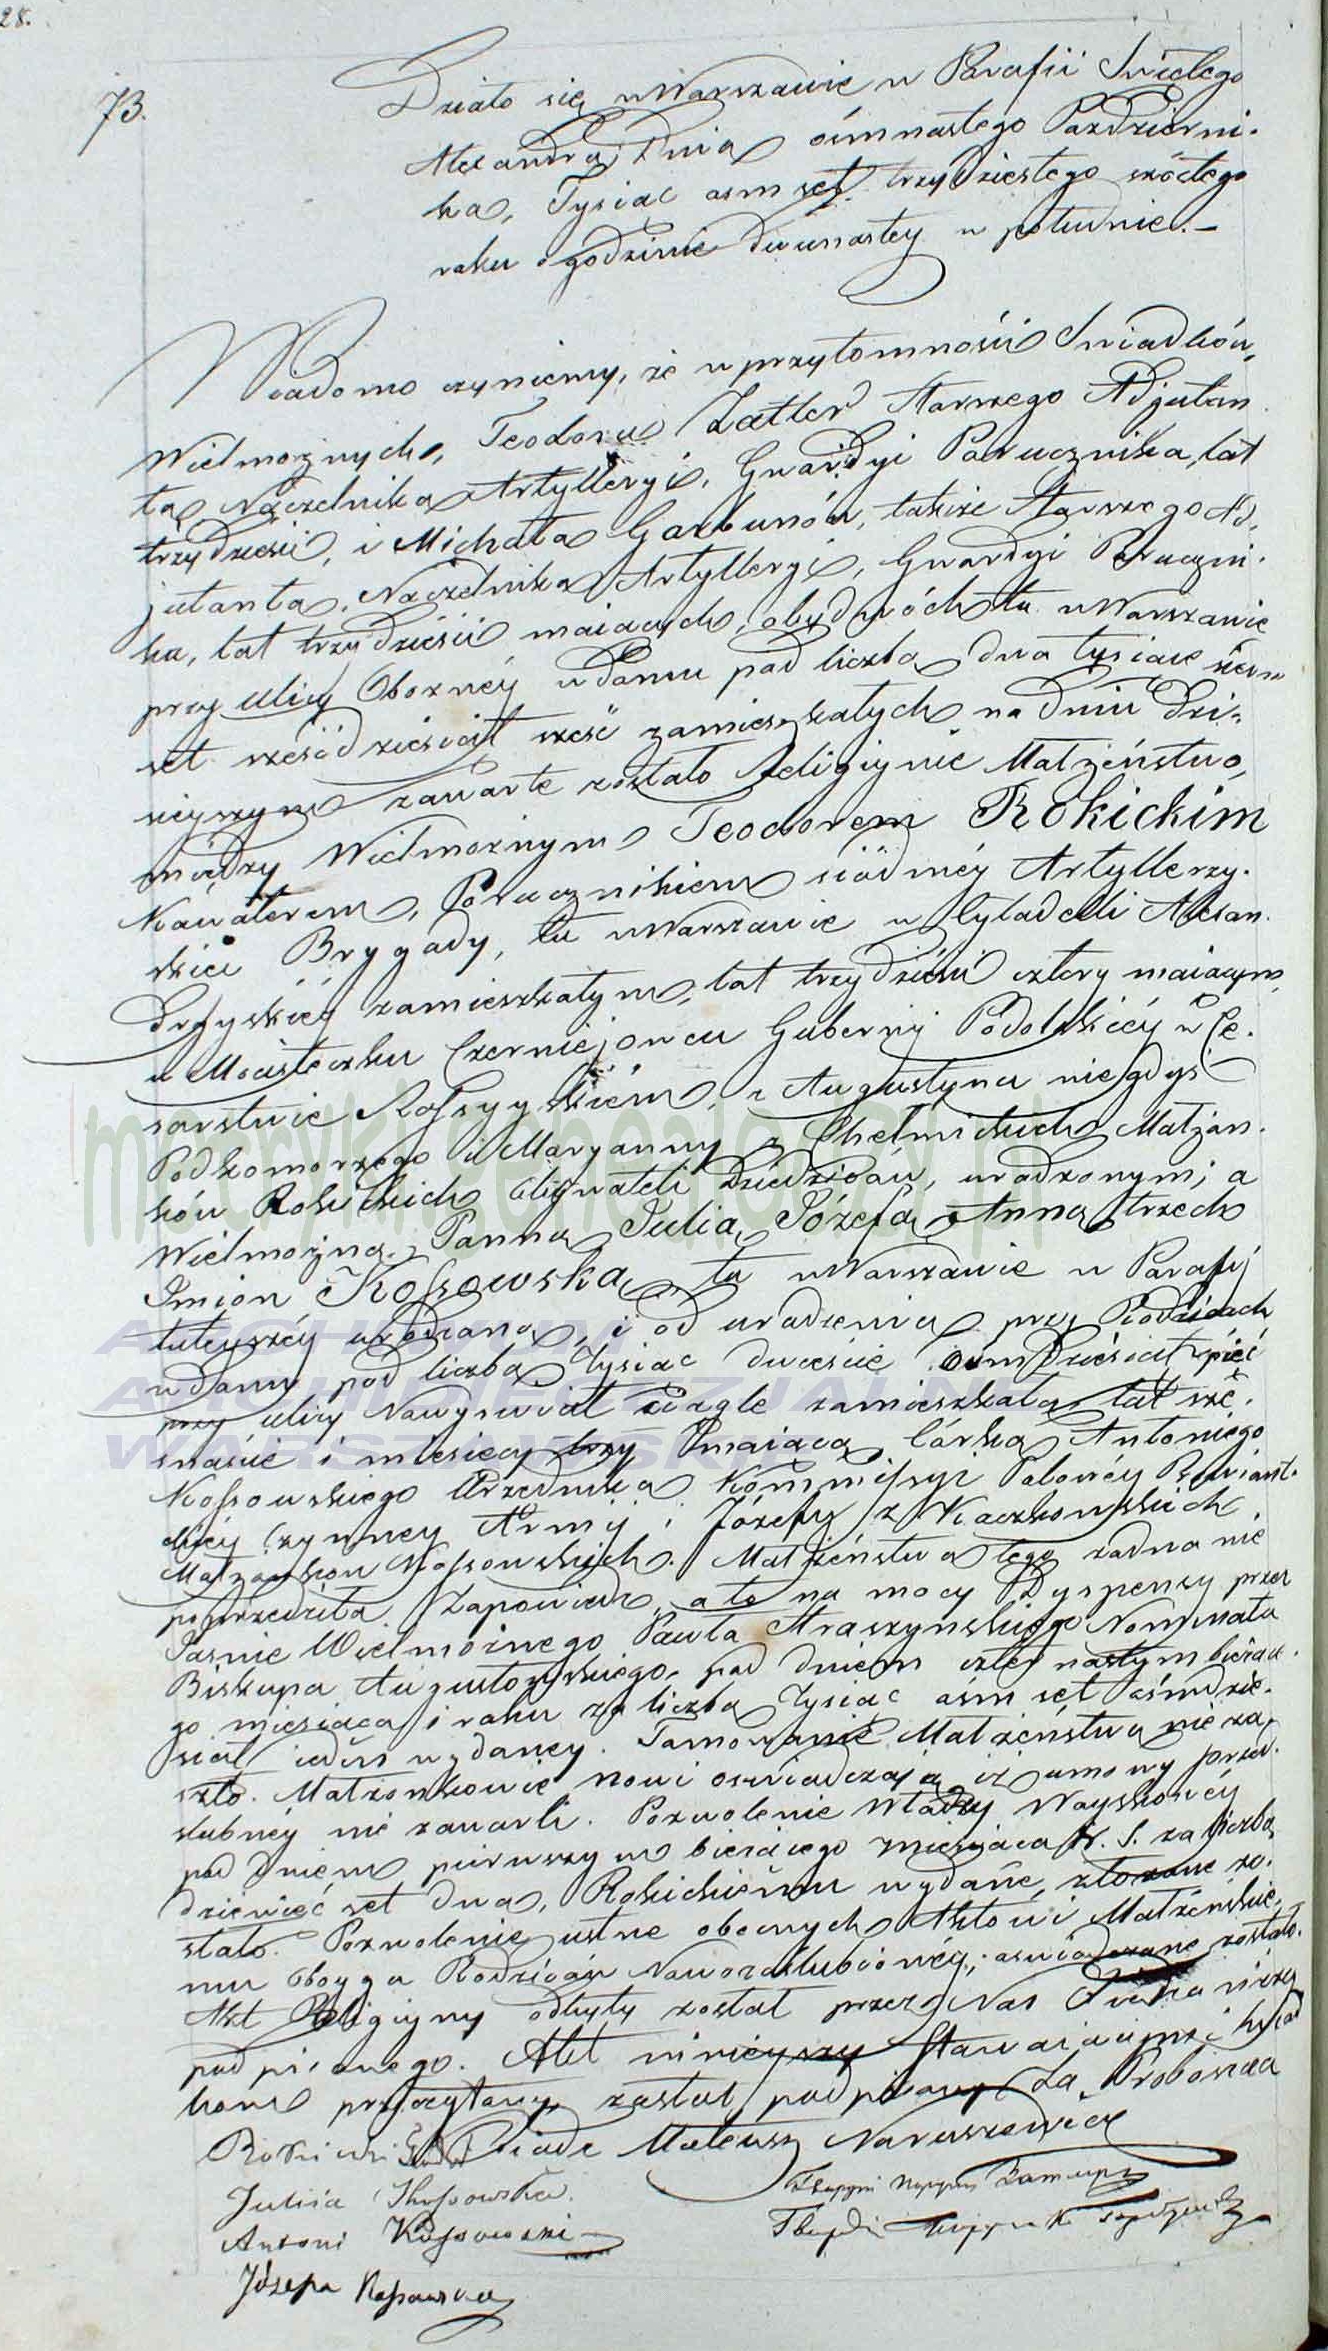 28.
73.
Działo się w Warszawie w Parafii Swiętego
Alexandra, Dnia ośmnastego Pazdzierni-
ka, Tysiąc osm set trzydziestego szóstego
roku o godzinie dwunastey w południe.–
Wiadomo czyniemy, że w przytomności Swiadków,
Wielmożnych, Teodora Zatler Starszego Adjutan
ta Naczelnika Artylleryi, Gwardyi Porucznika, lat
trzydzieści, i Michała Gorbunów, także Starszego Ad-
jutanta, Naczelnika Artylleryi, Gwardyi Poruczni-
ka, lat trzydzieści maiących, obydwóch tu w Warszawie
przy ulicy Oboznéy w Domu pod liczbą dwa tysiące
set sześćdziesiąt sześć zamieszkałych na dniu dzi-
sieyszym zawarte zostało Religiynie Małżeństwo,
między Wielmożnym Teodorem Rokickim
Kawalerem, Porucznikiem siódméy Artyllerzy-
skiéi Brygady, tu w Warszawie w Cytadelli Alexan-
dryyskiéy zamieszkałym, lat trzydzieści cztery maiącym,
w Miasteczku Czerniejowcu Gubernij Podolskiéy w Ce-
sarstwie Rossyyskiém, z Augustyna niegdyś
Podkomorzego i Maryanny z Chełmickich Małżon-
ków Rokickich Obywateli Dziedziców, urodzonym; a
Wielmożną Panną Julią, Józefą, Anną trzech
Imion Kossowską, tu w Warszawie w Parafij
tuteyszéy urodzoną, i od urodzenia przy Rodzicach
w domu pod liczbą Tysiąc dwieście osmdziesiąt pięć
przy ulicy Nowyświat ciągle zamieszkałą, lat sze-
snaście i miesięcy trzy maiącą, Córką Antoniego
Kossowskiego Urzędnika Kommissyi Polowéy Prowiant-
skiéy Czynney Armij i Józefy z Kaczkowskich
Małżonków Kossowskich. Małżeństwa tego żadna nie
poprzedziła Zapowiedź, a to na mocy Dyspensy przez
Jasnie Wielmożnego Pawła Straszyńskiego Nominata
Biskupa Augustowskiego, pod dniem czternastym bieżące-
go miesiąca i roku za liczbą Tysiąc ośm set ośmdzie-
siąt ieden wydaney. Tamowanie Małżeństwa nie za-
szło. Małżonkowie nowi oswiadczaią iż umowy przed-
slubnéy nie zawarli. Pozwolenie Władzy Woyskowéy
pod dniem pierwszym bieżącego miesiąca N. S. za liczbą
dziewięć set dwa, Rokickiemu wydane, złożone zo-
stało. Pozwolenie ustne obecnych Aktowi Małżeńskie-
mu Oboyga Rodziców Nowozaślubionéy, oswiadczone zostało.
Akt Religiyny odbyty został przez Nas niżey
podpisanego. Akt ninieyszy Stawaiącym i Swiad
kom przeczytany, został podpisany. Za Proboszcza
Xiądz Mateusz Naruszewicz
Rokicki
Julia Kossowska
Antoni Kossowski
Józepa Kossowska
metryki.genealodzy.pl
ARCHIWUM
ARCHIDIECEZJALNE
WARSZAWSKIE